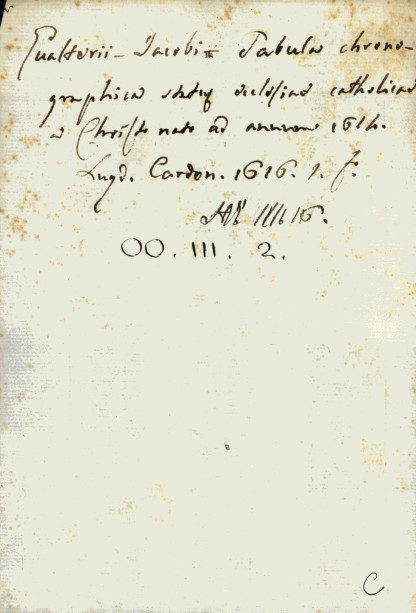 Gualterii - Jacobi - Tabula chrono-
graphica status ecclesiae catholicae
a Christo nato ad annum 1614.
Lugd. Cardon. 1616. 1. f.
IIII 16.
OO. III. 2.
C